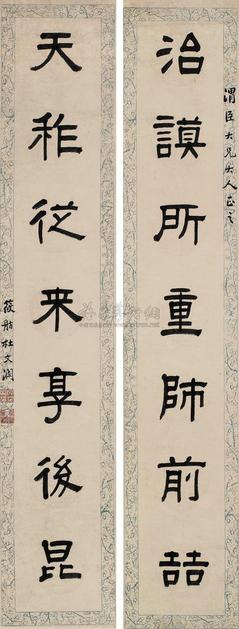 渭臣大兄大人正之
治謨所重師前喆
天秨從来享後昆
筱舫杜文瀾